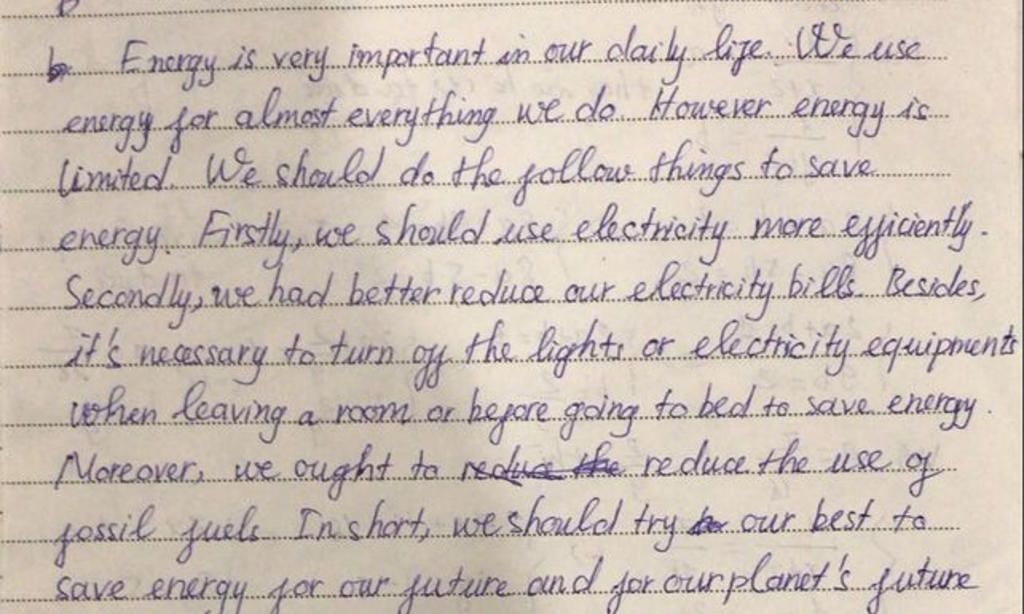 b. Energy is very important in our daily life. We use
energy for almost everything we do. However energy is
limited. We should do the follow things to save
energy. Firstly, we should use electricity more efficiently.
Secondly, we had better reduce our electricity bills. Besides,
it's necessary to turn off the lights or electricity equipments
when leaving a room or before going to bed to save energy.
Moreover, we ought to reduce the reduce the use of
fossil fuels. In short, we should try our best to
save energy for our future and for our planet's future